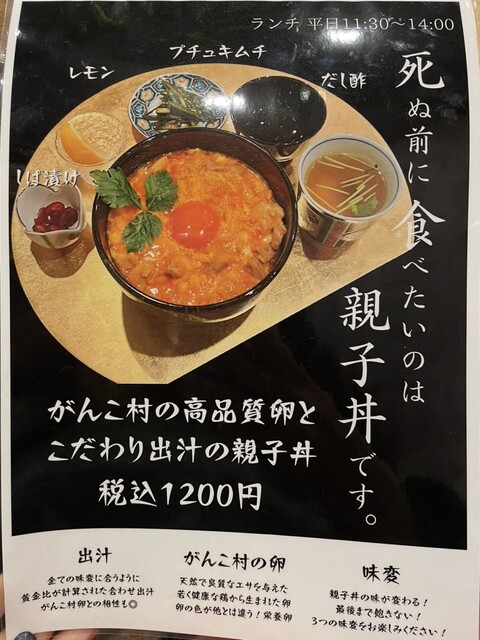 ランチ 平日11:30～14:00
死ぬ前に食べたいのは
親子丼です。
プチュキムチ
レモン
だし酢
しば漬け
がんこ村の高品質卵と
こだわり出汁の親子丼
税込1200円
出汁
全ての味変に合うように
黄金比が計算された合わせ出汁
がんこ村卵との相性も◎
がんこ村の卵
天然で良質なエサを与えた
若く健康な鶏から生まれた卵
卵の色が他とは違う！栄養卵
味変
親子丼の味が変わる！
最後まで飽きない！
3つの味変をお楽しみください！